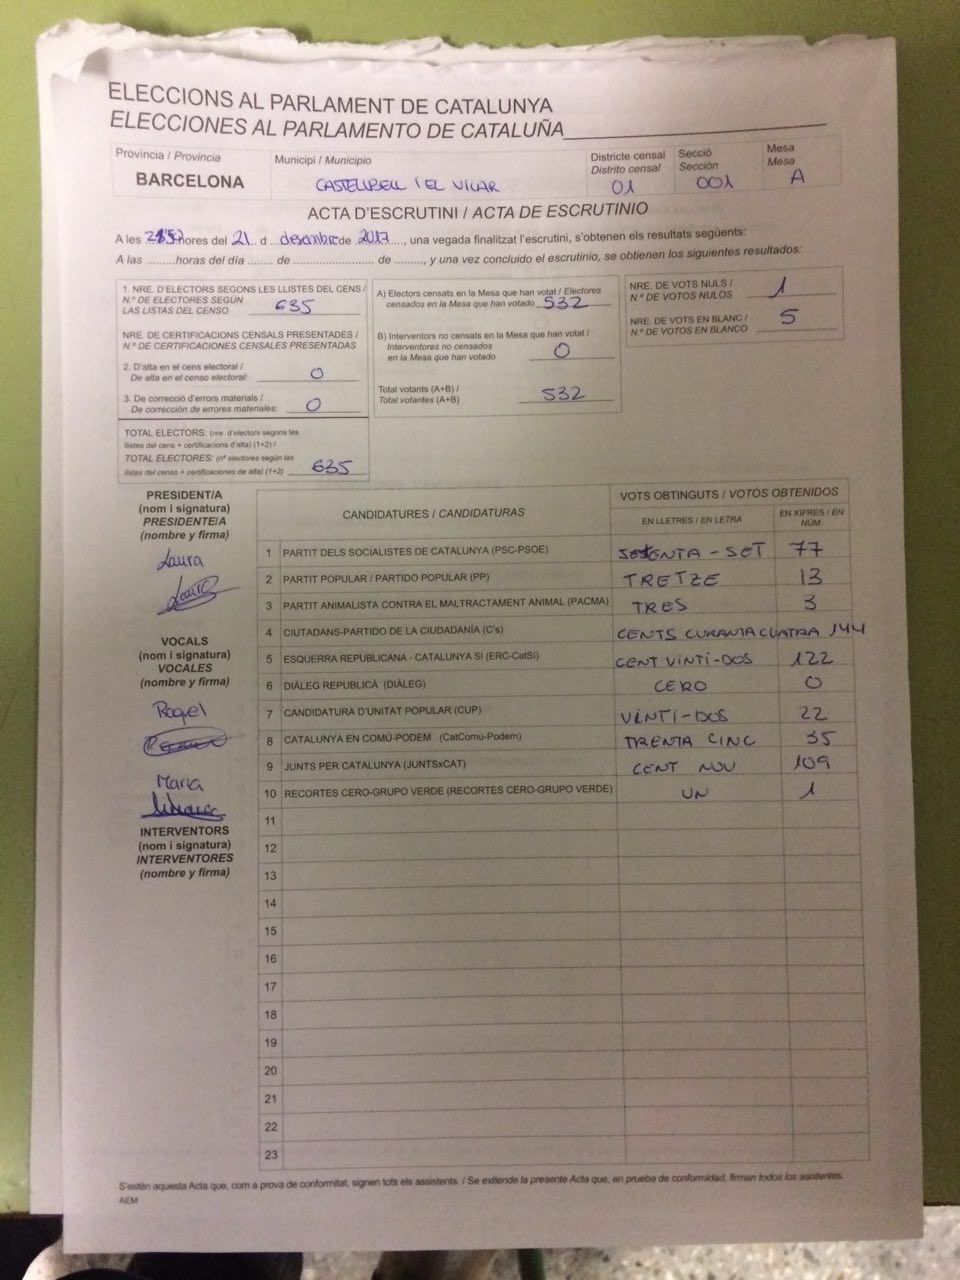 ELECCIONS AL PARLAMENT DE CATALUNYA
ELECCIONES AL PARLAMENTO DE CATALUÑA
Província / Provincia
BARCELONA
Municipi / Municipio
CASTELLBELL I EL VILAR
Districte censal
Distrito censal
01
Secció
Sección
001
Mesa
Mesa
A
ACTA D'ESCRUTINI / ACTA DE ESCRUTINIO
A les hores del 21 d desembre de 2017, una vegada finalitzat l'escrutini, s'obtenen els resultats següents:
A las .........horas del día ........ de ........................ de ........., y una vez concluido el escrutinio, se obtienen los siguientes resultados:
1. NRE. D'ELECTORS SEGONS LES LLISTES DEL CENS /
N.º DE ELECTORES SEGÚN
LAS LISTAS DEL CENSO 635
NRE. DE CERTIFICACIONS CENSALS PRESENTADES /
N.º DE CERTIFICACIONES CENSALES PRESENTADAS
2. D'alta en el cens electoral /
De alta en el censo electoral: 0
3. De correcció d'errors materials /
De corrección de errores materiales: 0
TOTAL ELECTORS: (nre. d'electors segons les
llistes del cens + certificacions d'alta) (1+2) /
TOTAL ELECTORES: (nº electores según las
listas del censo + certificaciones de alta) (1+2) 635
A) Electors censats en la Mesa que han votat / Electores
censados en la Mesa que han votado 532
B) Interventors no censats en la Mesa que han votat /
Interventores no censados
en la Mesa que han votado 0
Total votants (A+B) /
Total votantes (A+B) 532
NRE. DE VOTS NULS /
N.º DE VOTOS NULOS 1
NRE. DE VOTS EN BLANC /
N.º DE VOTOS EN BLANCO 5
PRESIDENT/A
(nom i signatura)
PRESIDENTE/A
(nombre y firma)
Laura
Laura
VOCALS
(nom i signatura)
VOCALES
(nombre y firma)
Roger
Maria
INTERVENTORS
(nom i signatura)
INTERVENTORES
(nombre y firma)
CANDIDATURES / CANDIDATURAS
VOTS OBTINGUTS / VOTOS OBTENIDOS
EN LLETRES / EN LETRA
EN XIFRES / EN NÚM.
1 PARTIT DELS SOCIALISTES DE CATALUNYA (PSC-PSOE) SETENTA-SET 77
2 PARTIT POPULAR / PARTIDO POPULAR (PP) TRETZE 13
3 PARTIT ANIMALISTA CONTRA EL MALTRACTAMENT ANIMAL (PACMA) TRES 3
4 CIUTADANS-PARTIDO DE LA CIUDADANÍA (C's) CENTS CURANTA CUATRA 144
5 ESQUERRA REPUBLICANA - CATALUNYA SÍ (ERC-CatSí) CENT VINTI-DOS 122
6 DIÀLEG REPUBLICÀ (DIÀLEG) CERO 0
7 CANDIDATURA D'UNITAT POPULAR (CUP) VINTI-DOS 22
8 CATALUNYA EN COMÚ-PODEM (CatComú-Podem) TRENTA CINC 35
9 JUNTS PER CATALUNYA (JUNTSxCAT) CENT NOU 109
10 RECORTES CERO-GRUPO VERDE (RECORTES CERO-GRUPO VERDE) UN 1
11
12
13
14
15
16
17
18
19
20
21
22
23
S'estén aquesta Acta que, com a prova de conformitat, signen tots els assistents. / Se extiende la presente Acta que, en prueba de conformidad, firman todos los asistentes.
AEM